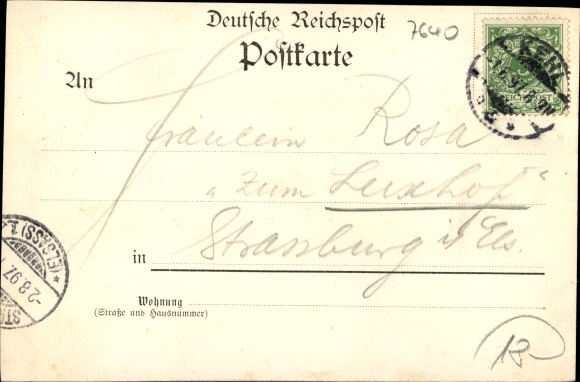 Deutsche Reichspost
7640
Postkarte
KEHL
REICHSPOST
An
Fräulein Rosa
"Zum Luxhof"
Strassburg i/ Els.
in
Wohnung
(Straße und Hausnummer)
(ELSASS)
2.8.97